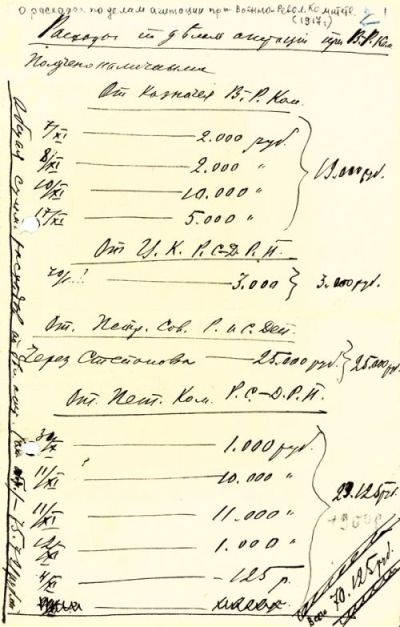 О расходах по делам агитации при Военно-Револ. Комитете 2
(1917 г.)
Расходы по дѣлам агитации при В.Р. Ком
Получено наличными
От Казначея В.Р. Ком.
7/XI — 2.000 руб.
8/XI — 2.000 "
10/XI — 10.000 "
17/XI — 5.000 "
19.000 руб.
От Ц.К. Р.С-Д.Р.П.
3.000 } 3.000 руб.
От. Петр. Сов. Р. и С. Деп.
Через — 25.000 руб. } 25.000 руб.
От. Пет. Ком. Р.С-Д.Р.П.
30/X — 1.000 руб.
11/XI — 10.000 "
11/XI — 11.000 "
12/XI — 1.000 "
4/XI — 125 р.
Всего 70.125 руб.
Общая сумма расходов